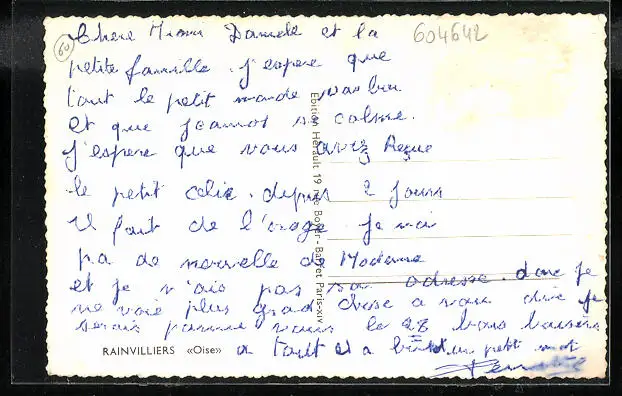 60
604642
Chere Mimi Daniele et la
petite famille. j'espere que
tout le petit monde vas bien
et que jeannot se calme.
j'espere que vous avez Reçue
le petit colie. depuis 2 jours
il fait de l'orage. je nai
pa de nouvelle de Madame
et je n'ais pas sa adresse. donc je
ne voie plus grand chose a vous dire je
serais parmie vous le 28 bons baisers
a tout et a bientot un petit mot
RAINVILLIERS «Oise»
Edition Hérault 19 rue Boyer-Barret Paris-XIV